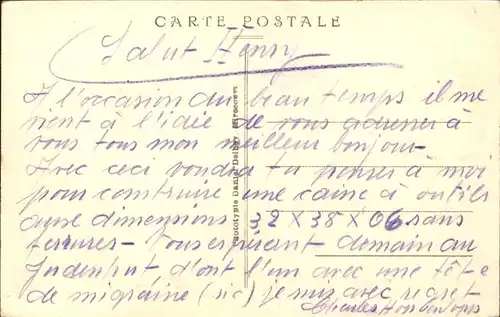 CARTE POSTALE
Salut Henry
A l'occasion du beau temps il me
vient à l'idée de vous adresser à
vous tous mon meilleur bonjour -
Avec ceci voudra tu penser à moi
pour construire une caisse à outils
aux dimensions 32 X 38 X 06 sans
- Vous espérant demain au
d'ont l'un avec une tête
de migraine (sic) je suis avec regret
Charles
Phototypie Daniel Delboy, Mirecourt